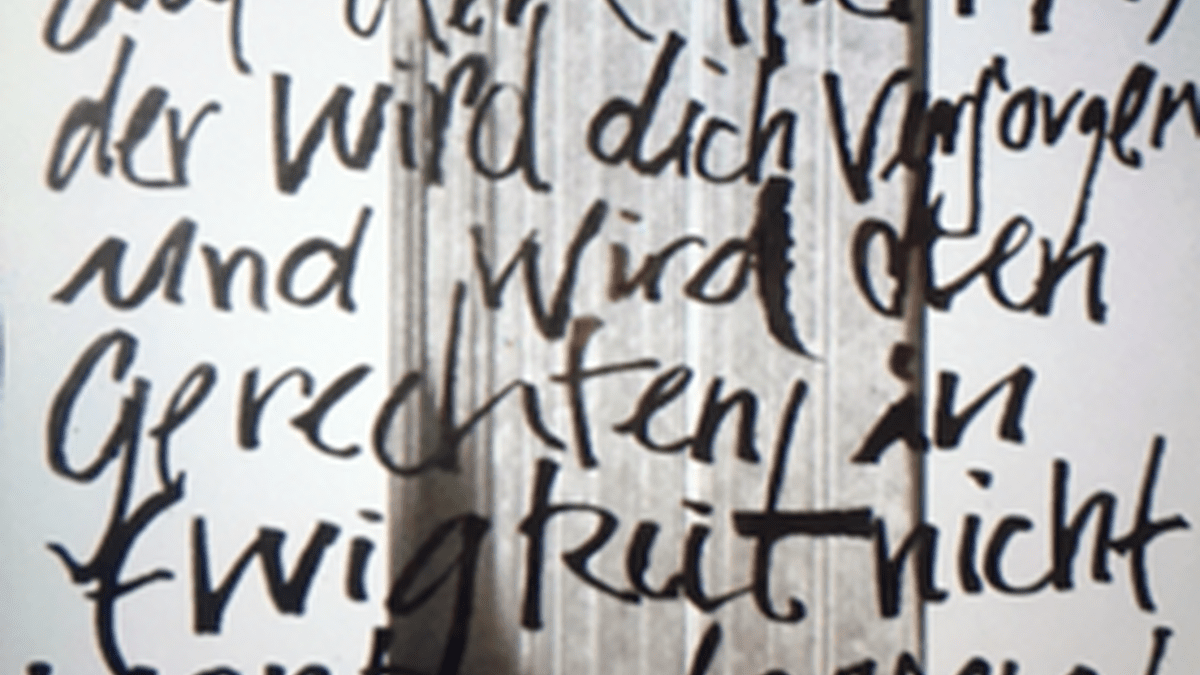 auf den
der wird dich versorgen
und wird den
Gerechten in
Ewigkeit nicht